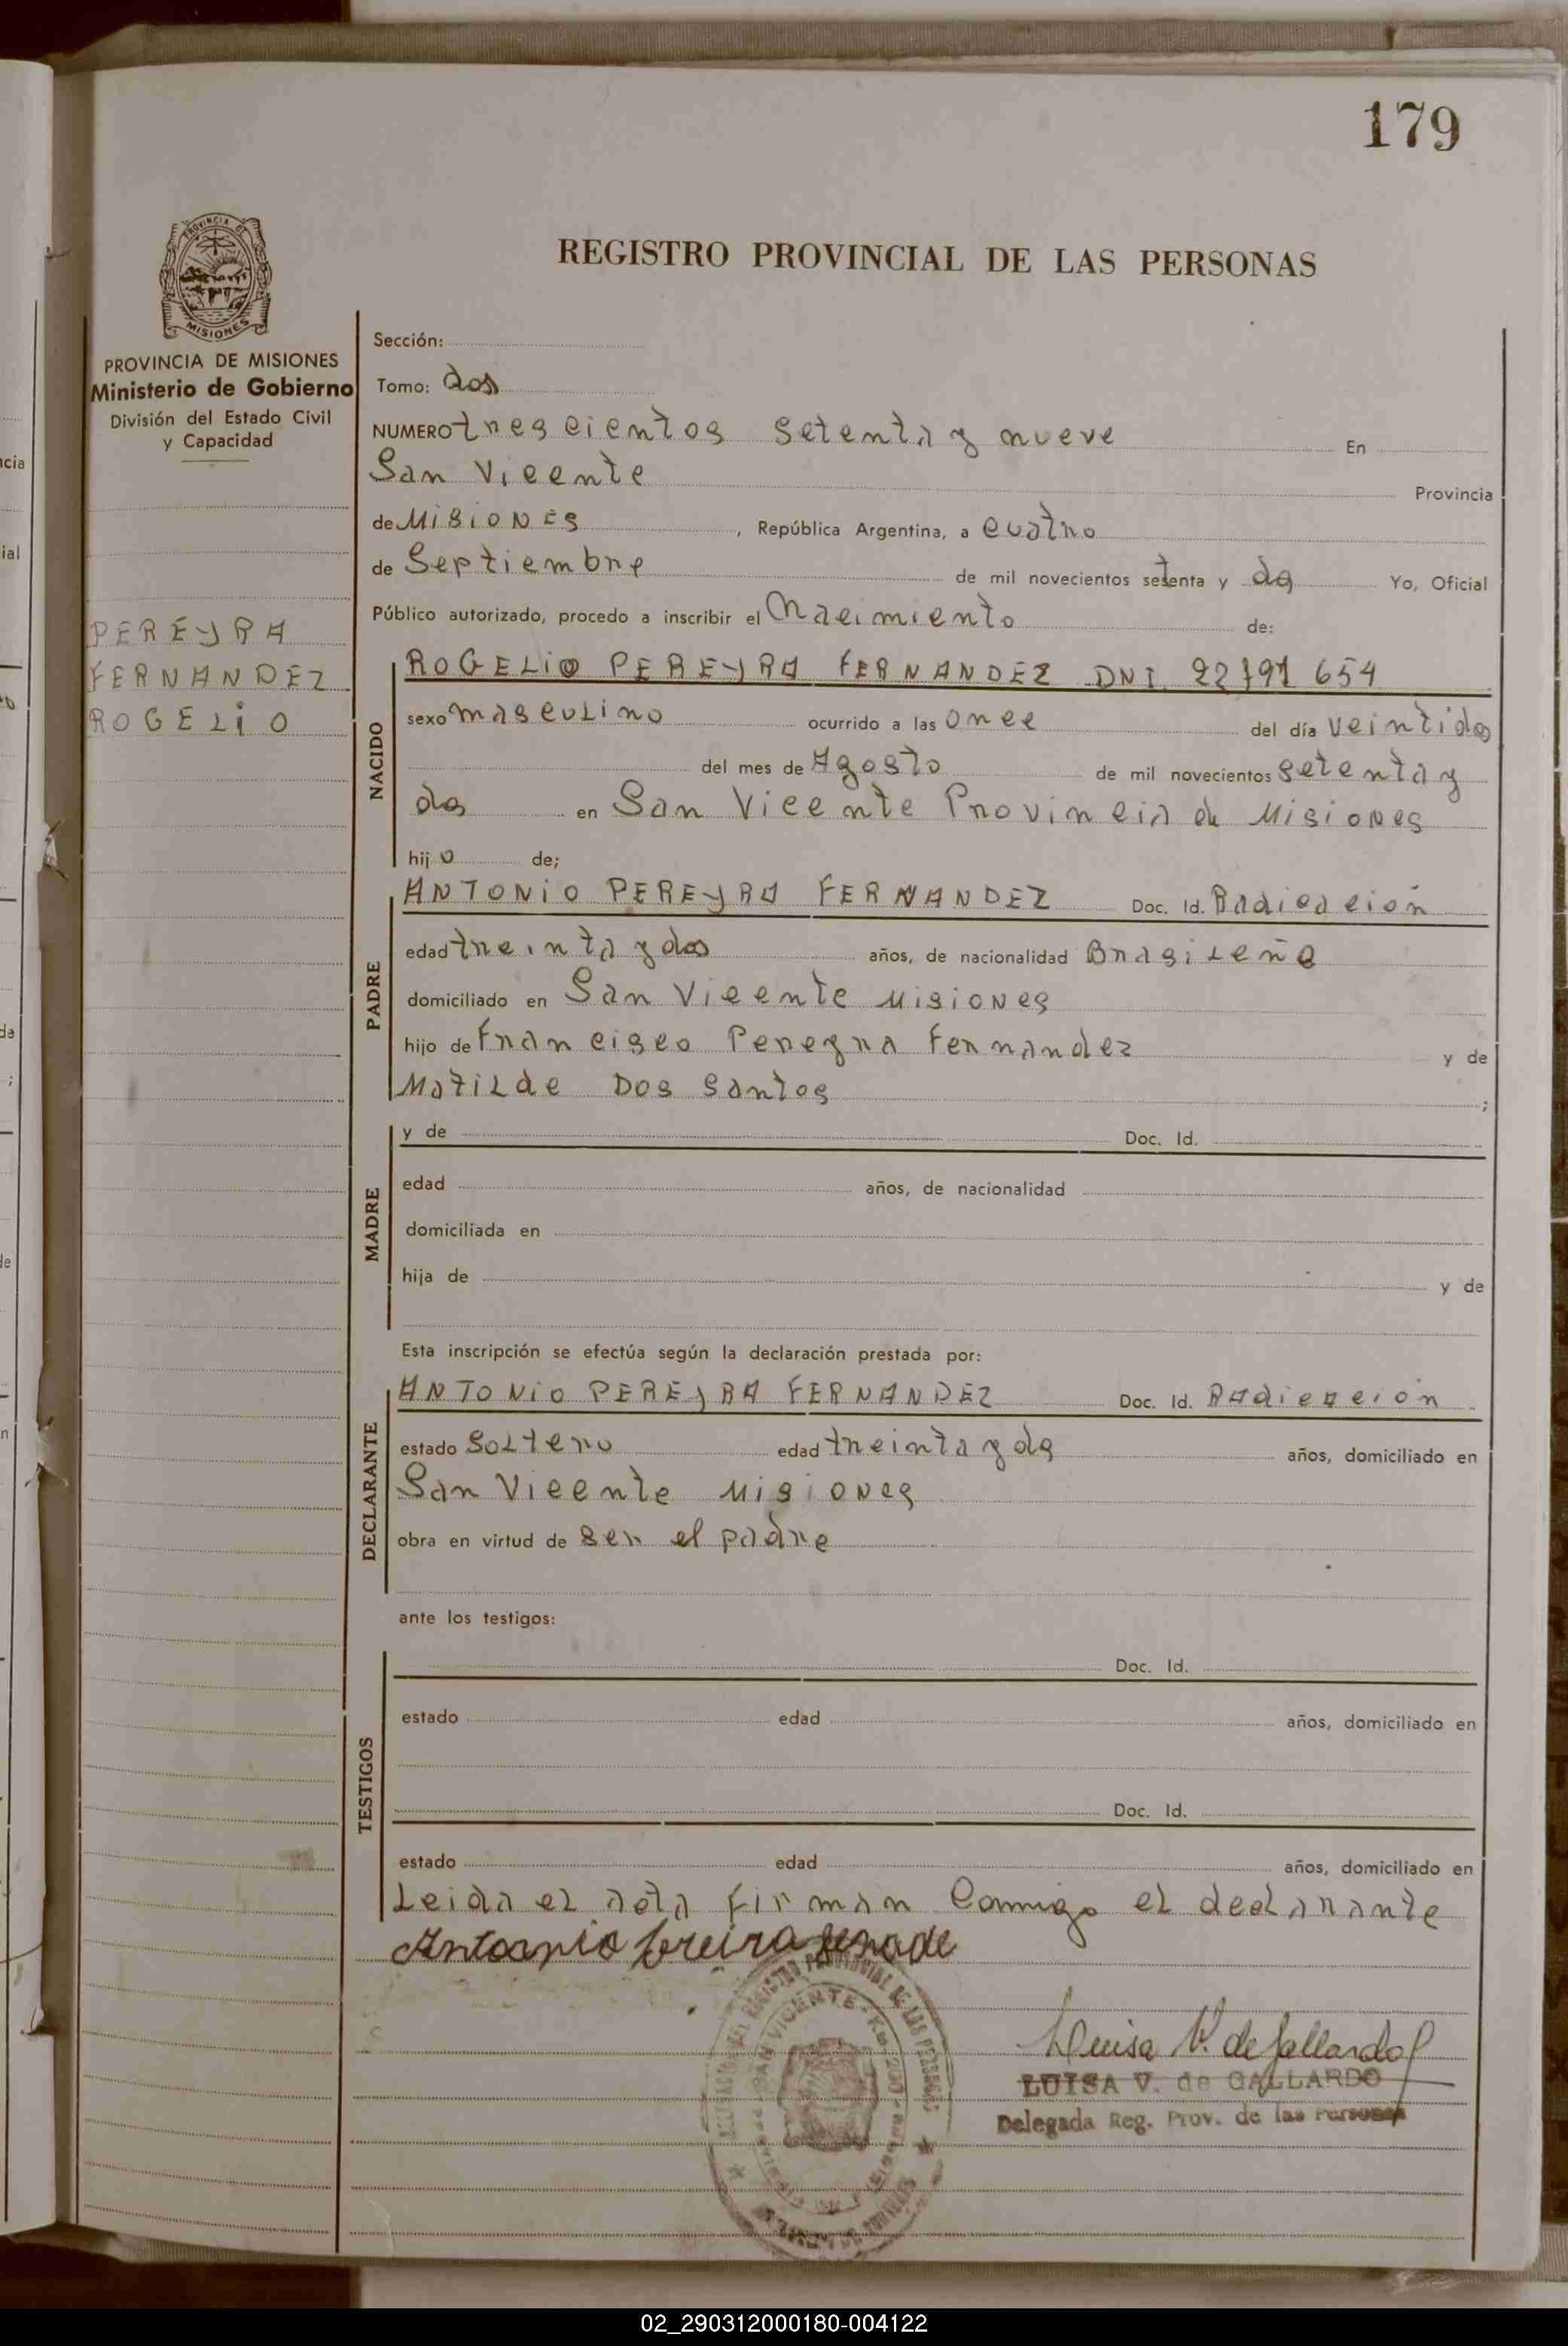 179
PROVINCIA DE MISIONES
Ministerio de Gobierno
División del Estado Civil
y Capacidad
REGISTRO PROVINCIAL DE LAS PERSONAS
Sección:
Tomo: dos
NUMERO trescientos setenta y nueve En
San Vicente Provincia
de Misiones, República Argentina, a cuatro
de Septiembre de mil novecientos setenta y dos Yo, Oficial
Público autorizado, procedo a inscribir el Nacimiento de:
PEREYRA
FERNANDEZ
ROGELIO
NACIDO
ROGELIO PEREYRA FERNANDEZ DNI. 22791 654
sexo masculino ocurrido a las once del día veintidos
del mes de Agosto de mil novecientos setenta y
dos en San Vicente Provincia de Misiones
hijo de;
PADRE
ANTONIO PEREYRA FERNANDEZ Doc. Id. Radicación
edad treinta y dos años, de nacionalidad Brasileña
domiciliado en San Vicente Misiones
hijo de Francisco Pereyra Fernandez y de
Matilde Dos Santos ;
MADRE
y de Doc. Id.
edad años, de nacionalidad
domiciliada en
hija de y de
Esta inscripción se efectúa según la declaración prestada por:
DECLARANTE
ANTONIO PEREYRA FERNANDEZ Doc. Id. Radicación
estado Soltero edad treinta y dos años, domiciliado en
San Vicente Misiones
obra en virtud de ser el padre
ante los testigos:
TESTIGOS
Doc. Id.
estado edad años, domiciliado en
Doc. Id.
estado edad años, domiciliado en
Leida el acta firman conmigo el declarante
Luisa V. de Gallardo
LUISA V. de GALLARDO
Delegada Reg. Prov. de las Personas
02_290312000180-004122